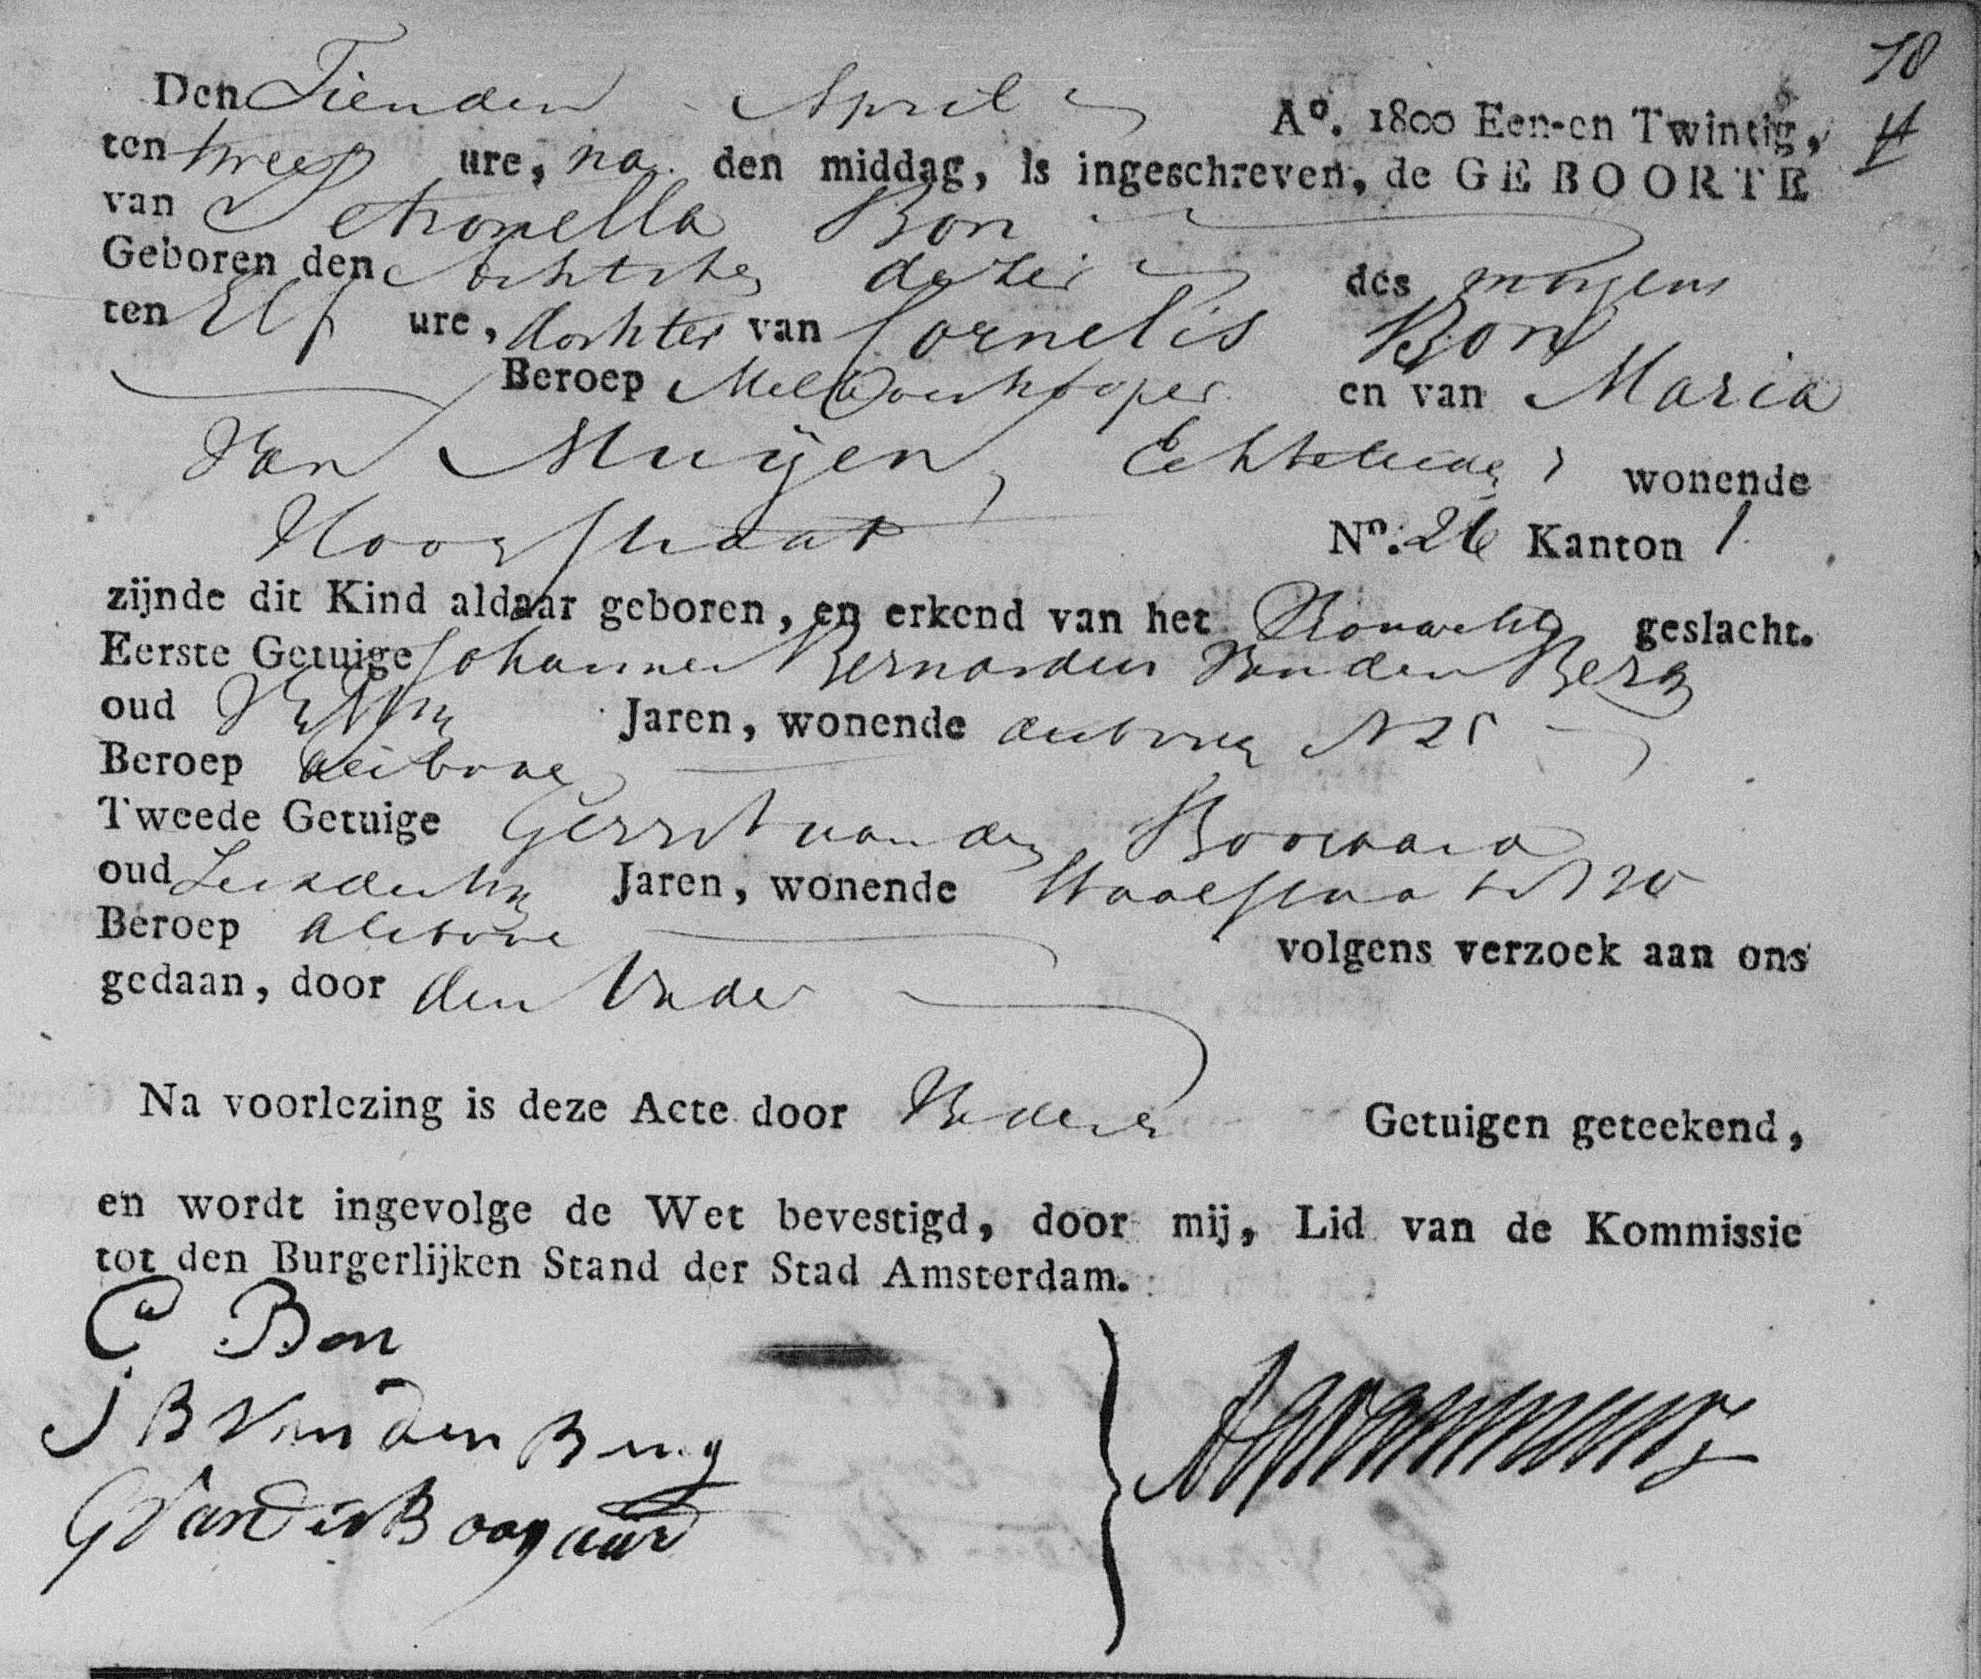 78
Den Tienden April A°. 1800 Een-en Twintig,
ten twee ure, na den middag, is ingeschreven, de GEBOORTE
van Petronella Bon
Geboren den achtste dezer des morgens
ten Elf ure, dochter van Cornelis Bon
Beroep en van Maria
Van Muijen, Echtelieden, wonende
Hoogstraat N°. 26 Kanton 1
zijnde dit Kind aldaar geboren, en erkend van het Vrouwelijk geslacht.
Eerste Getuige Johannes Bernardus Van den Berg
oud Jaren, wonende
Beroep
Tweede Getuige Gerrit van den Boogaard
oud Jaren, wonende Staalstraat
Beroep volgens verzoek aan ons
gedaan, door den Vader
Na voorlezing is deze Acte door Beide Getuigen geteekend,
en wordt ingevolge de Wet bevestigd, door mij, Lid van de Kommissie
tot den Burgerlijken Stand der Stad Amsterdam.
C Bon
J B Van den Berg
G Van den Boogaard